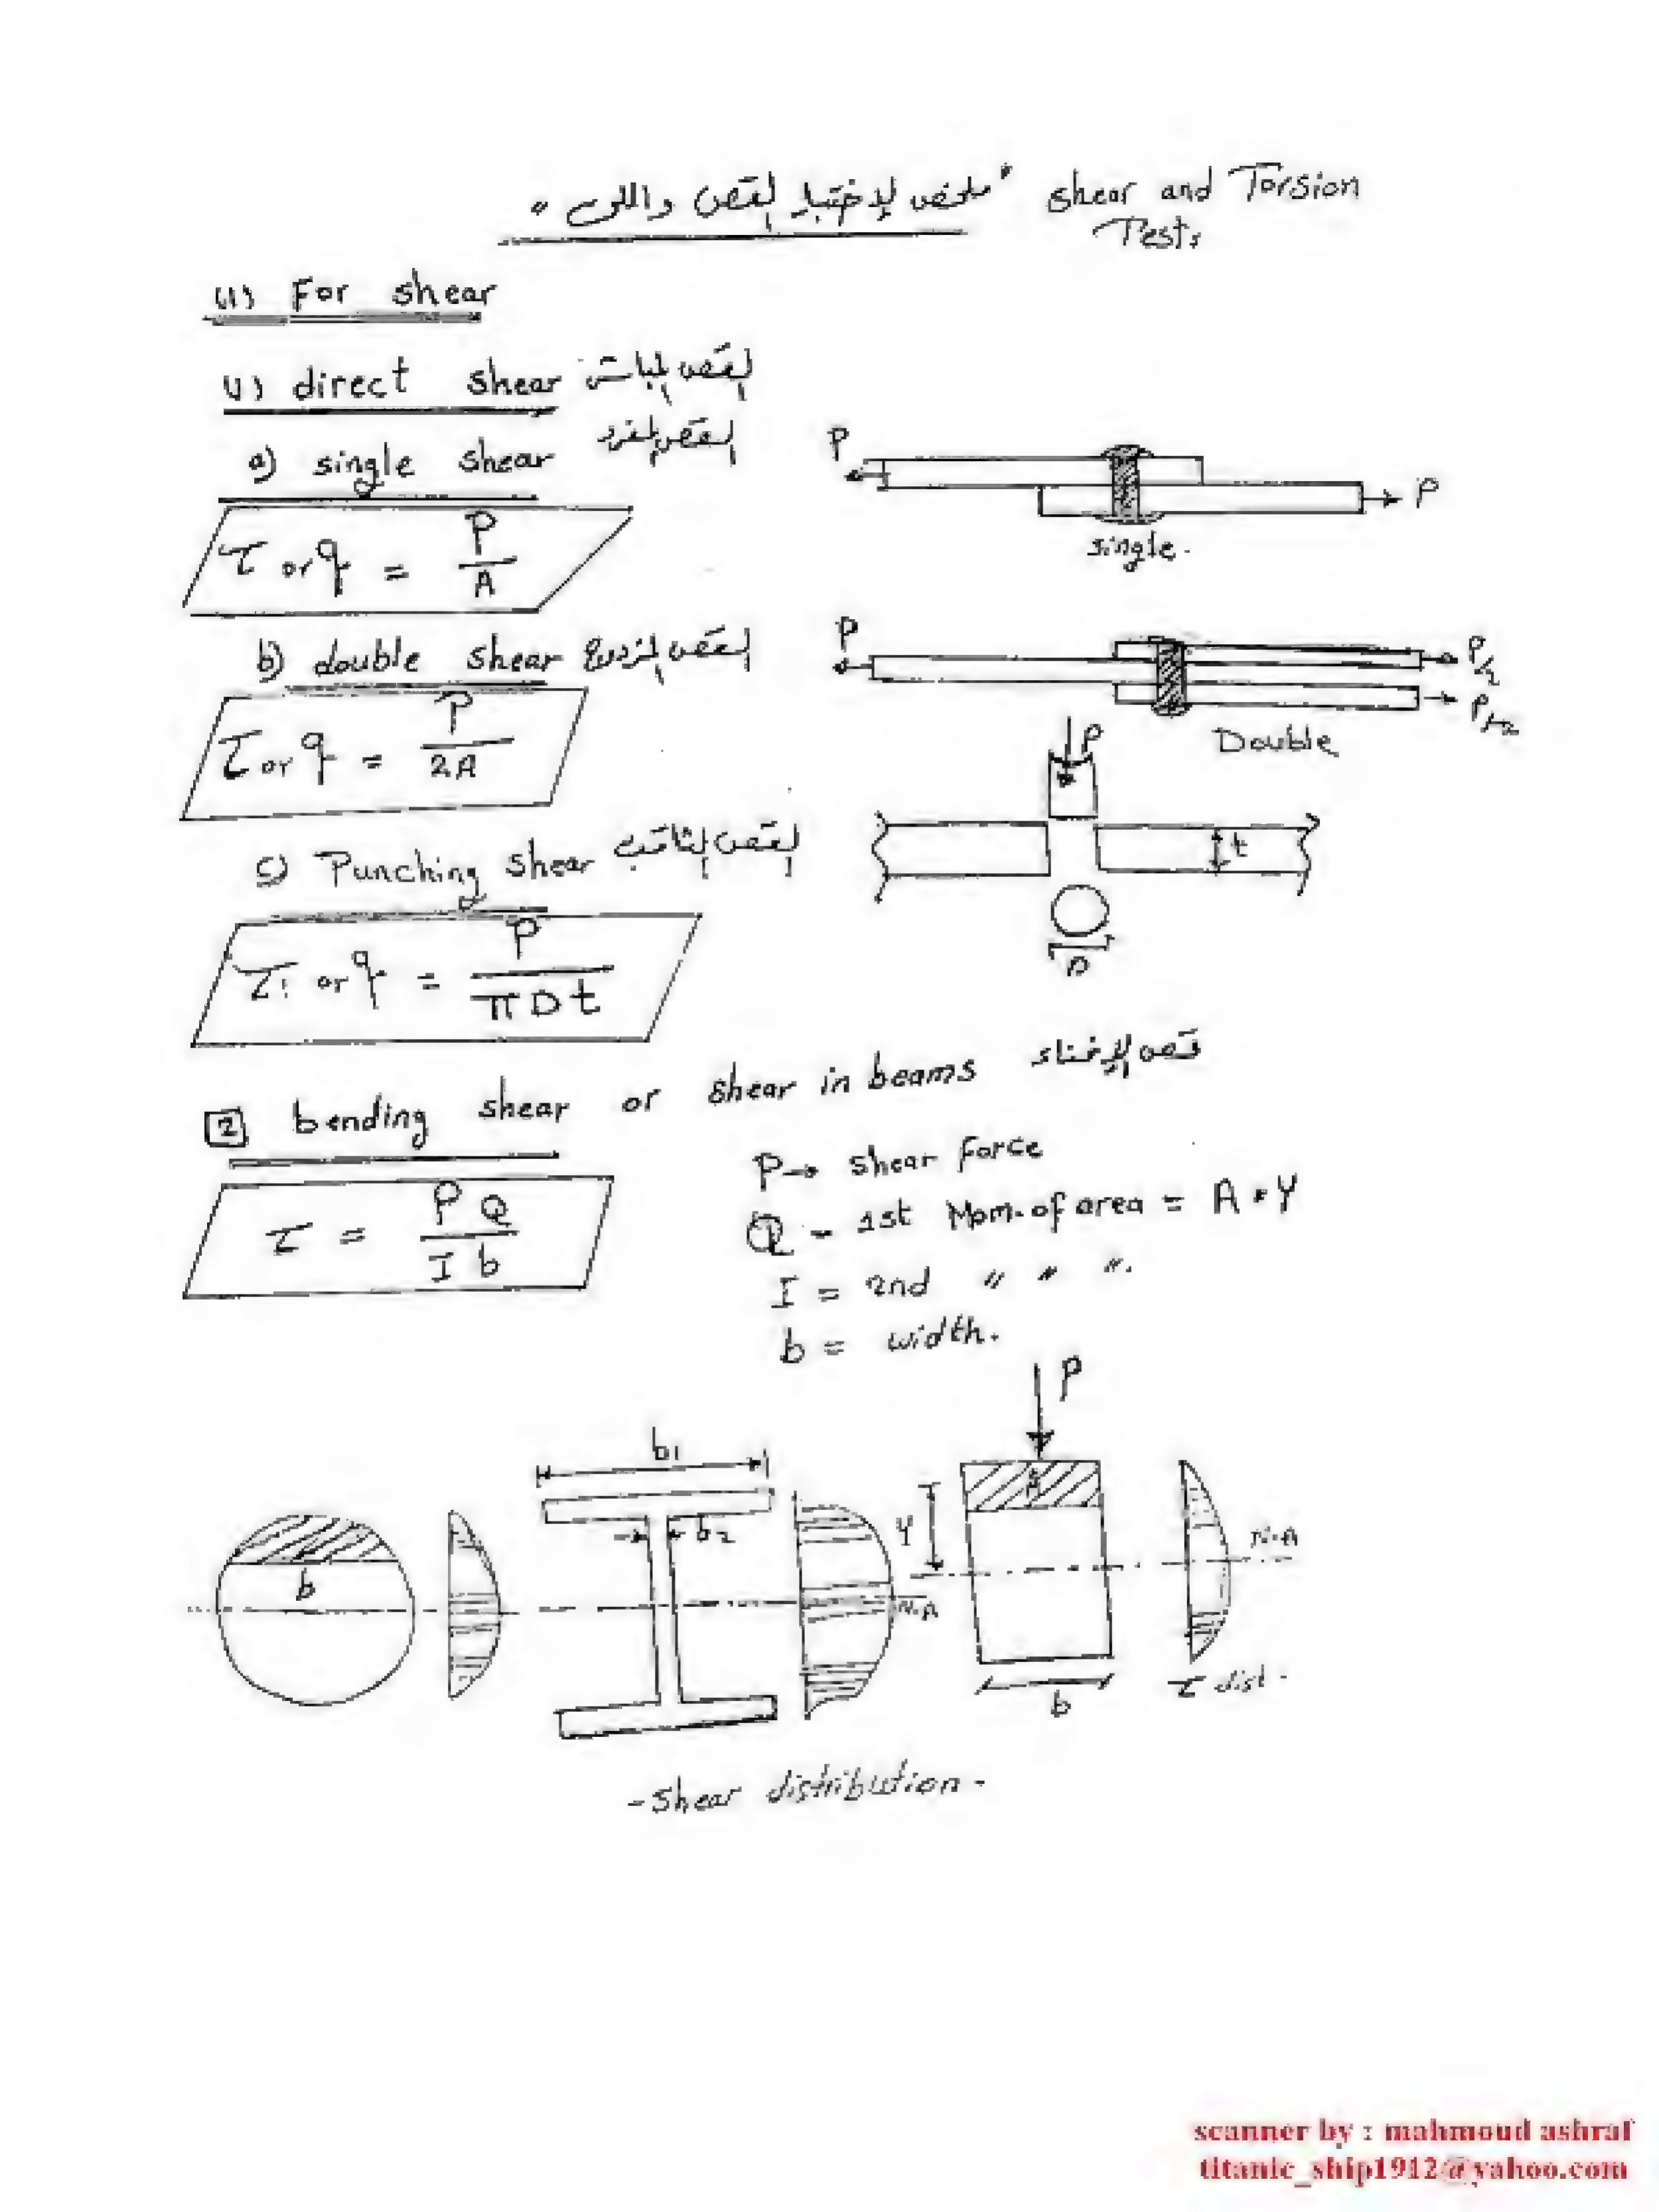 "ملخص لإختبار القص واللى" shear and Torsion
Tests
(1) For shear
(1) direct shear القص المباشر
a) single shear القص المفرد
τ or q = P / A
P
P
single.
b) double shear القص المزدوج
τ or q = P / 2A
P
P/2
P/2
Double
c) Punching shear القص الثاقب
τ or q = P / π D t
P
t
D
2 bending shear or shear in beams قص الإنحناء
τ = P Q / I b
P → shear force
Q = 1st Mom. of area = A * Y
I = 2nd " " ".
b = width.
P
b
b1
b2
N.A
A
Y
N.A
b
τ dist.
- Shear distribution -
scanner by : mahmoud ashraf
titanic_ship1912@yahoo.com